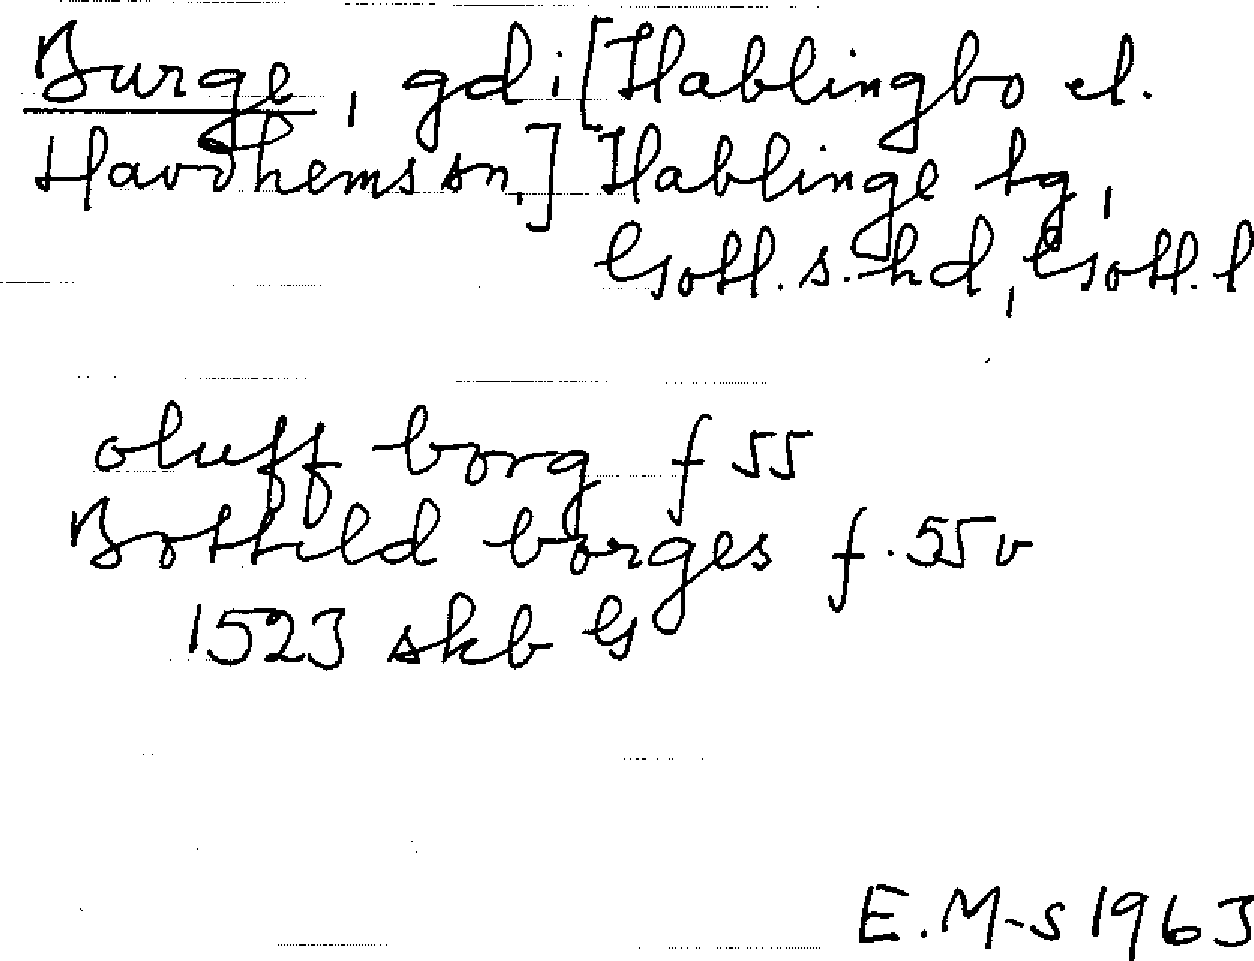 Burge, gd i [Hablingbo el.
Havdhems sn,] Hablinge tg,
Gotl. s. hd, Gotl. l
oluff borg f 55
Bothild borges f. 55v
1523 skb G
E.M-s 1963